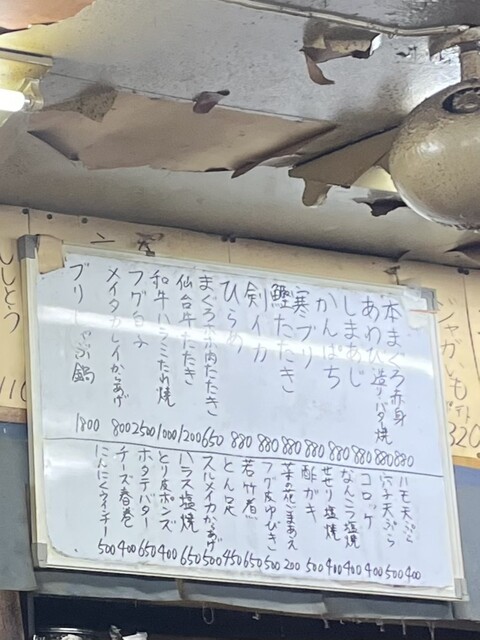 ジャがいも
ポテト
320
本まぐろ赤身 880
あわび造り バタ焼 880
しまあじ 880
かんぱち 880
寒ブリ 880
鰹たたき 880
剣イカ 880
ひらめ 880
まぐろホホ肉たたき 650
仙台牛たたき 1200
和牛ハラミたれ焼 1000
フグ白子 2500
メイタカレイからあげ 800
ブリしゃぶ鍋 1800
ハモ天ぷら 400
穴子天ぷら 500
コロッケ 400
なんこつ塩焼 400
せせり塩焼 400
酢ガキ 500
菜の花ごまあえ 200
フグ皮ゆびき 500
若竹煮 650
とん足 450
スルメイカからあげ 500
ハラス塩焼 650
とり皮ポンズ 400
ホタテバター 650
チーズ春巻 400
にんにくウィンナー 500
ししとう
110